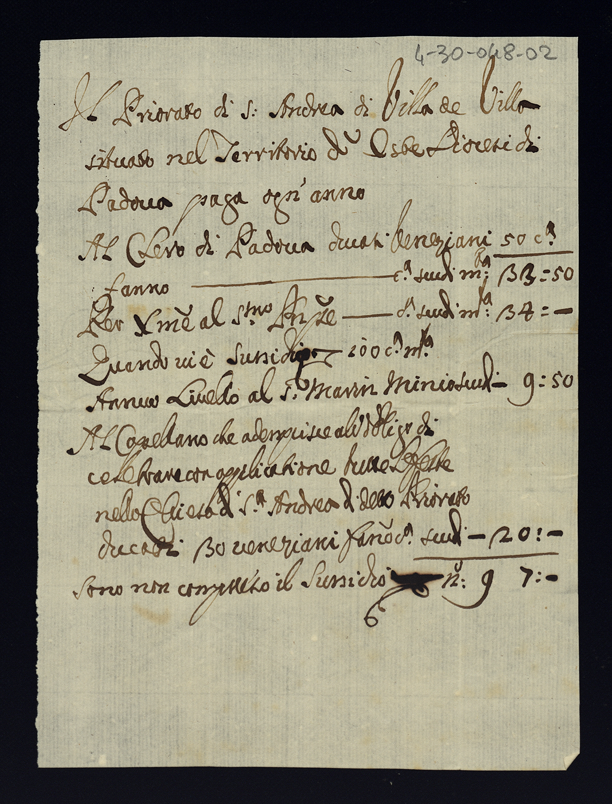 4-30-048-02
Il Priorato di S: Andrea di Villa de Villa
situato nel Territorio d' Este Diocesi di
Padova paga ogn'anno
Al Clero di Padova ducati Veneziani 50 c.ti
fanno — scudi m:ta 33=50
Per Xme al S.mo — scudi m:ta 34=—
Quando vi è sussidio 100 m:ta
Annuo Livello al S.r Marin Minio scudi — 9:50
Al Capellano che adempisce all'obligo di
celebrare con applicatione tutte le feste
nella Chiesa di S.t Andrea di detto Priorato
ducati 30 veneziani fanno scudi — 20:—
sono non compreso il sussidio n: 97:—